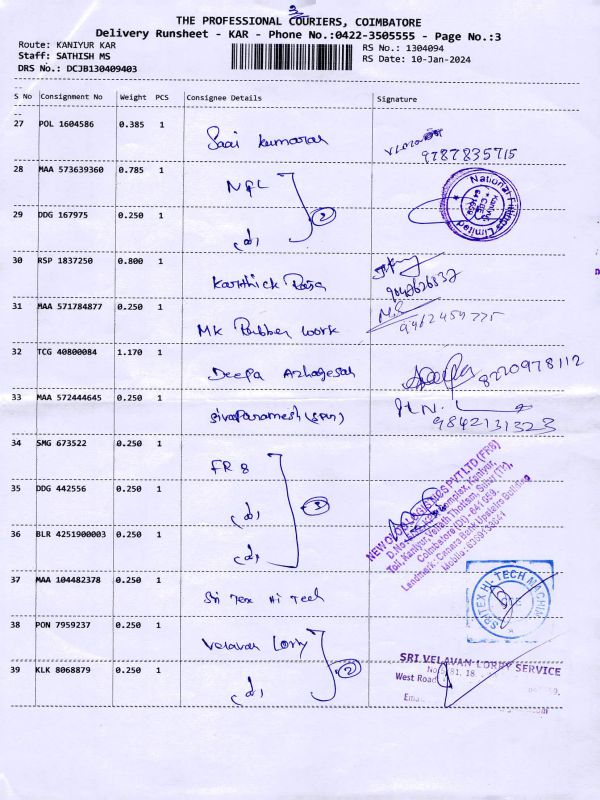 3
THE PROFESSIONAL COURIERS, COIMBATORE
Delivery Runsheet - KAR - Phone No.:0422-3505555 - Page No.:3
Route: KANIYUR KAR
RS No.: 1304094
Staff: SATHISH MS
RS Date: 10-Jan-2024
DRS No.: DCJB130409403
S No Consignment No Weight PCS Consignee Details Signature
27 POL 1604586 0.385 1 Saai Kumaran
9787835715
28 MAA 573639360 0.785 1 NQL
National Fittings Limited
29 DDG 167975 0.250 1 (d) 2
30 RSP 1837250 0.800 1 Karthick Raja
9042626832
31 MAA 571784877 0.250 1 MK Rubber work M.S
9462459775
32 TCG 40800084 1.170 1 Deepa Azhagesan Deepa 8220978112
33 MAA 572444645 0.250 1 SivaParamesh (SPM) H.N.
9842131323
34 SMG 673522 0.250 1 FR 8
35 DDG 442556 0.250 1 (d) 3
36 BLR 4251900003 0.250 1 (d)
NEW LOGISTICS PVT LTD (FR8)
D.No Complex, Kaniyur,
Toll, Kaniyur, Venath Thottam, Sulur (Tk),
Coimbatore (Dt) - 641 659.
Landmark : Canara Bank Upstairs Building
Mobile :
37 MAA 104482378 0.250 1 Sri Tex Hi Tech
SRITEX HI-TECH MACHIN
CBE
38 PON 7959237 0.250 1 Velavan Lorry
SRI VELAVAN LORRY SERVICE
39 KLK 8068879 0.250 1 (d) 2
West Road